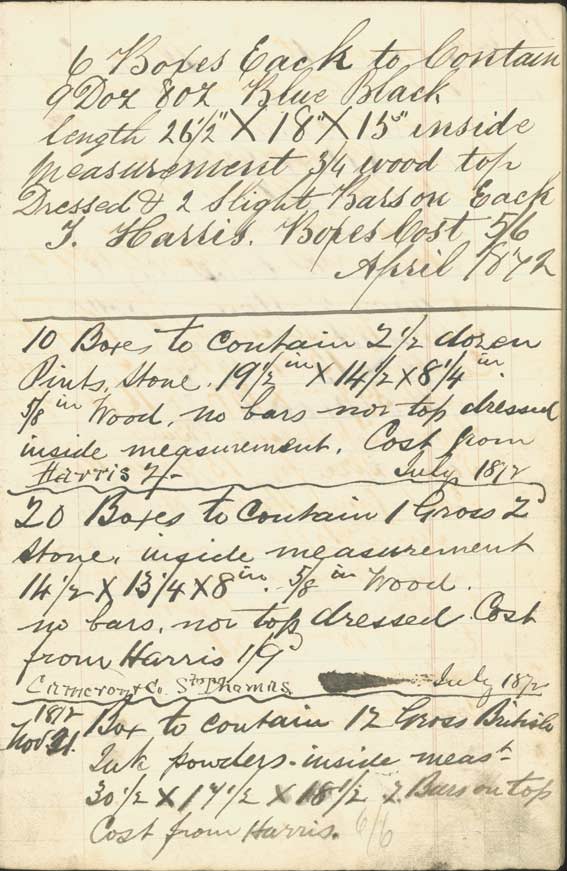 6 Boxes Each to Contain
9 Doz 8oz Blue Black
length 26 1/2" X 18" X 15" inside
measurement 3/4 wood top
Dressed & 2 Slight Bars on Each
T. Harris. Boxes Cost 5/6
April 1872
10 Boxes to contain 2 1/2 dozen
Pints, Stone. 19 1/2 in X 14 1/2 X 8 1/4 in.
5/8 in Wood, no bars nor top dressed
inside measurement. Cost from
Harris 2/-
July 1872
20 Boxes to Contain 1 Gross 2d
Stone. inside measurement
14 1/2 X 13 1/4 X 8 in. 5/8 in Wood.
no bars, nor top dressed Cost
from Harris 1/9
Cameron & Co. St Thomas
July 1872
1872
Nov 21.
Box to contain 12 Gross British
Ink powders. inside meast
30 1/2 X 17 1/2 X 18 1/2 2 Bars on top
Cost from Harris. 6/6